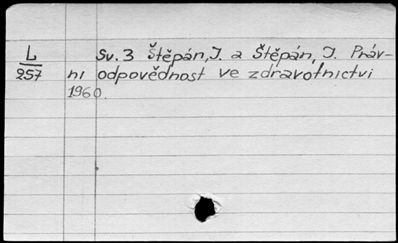 L Sv. 3 Štěpán, J. a Štěpán, J. Práv-
257 ní odpovědnost ve zdravotnictví
1960.